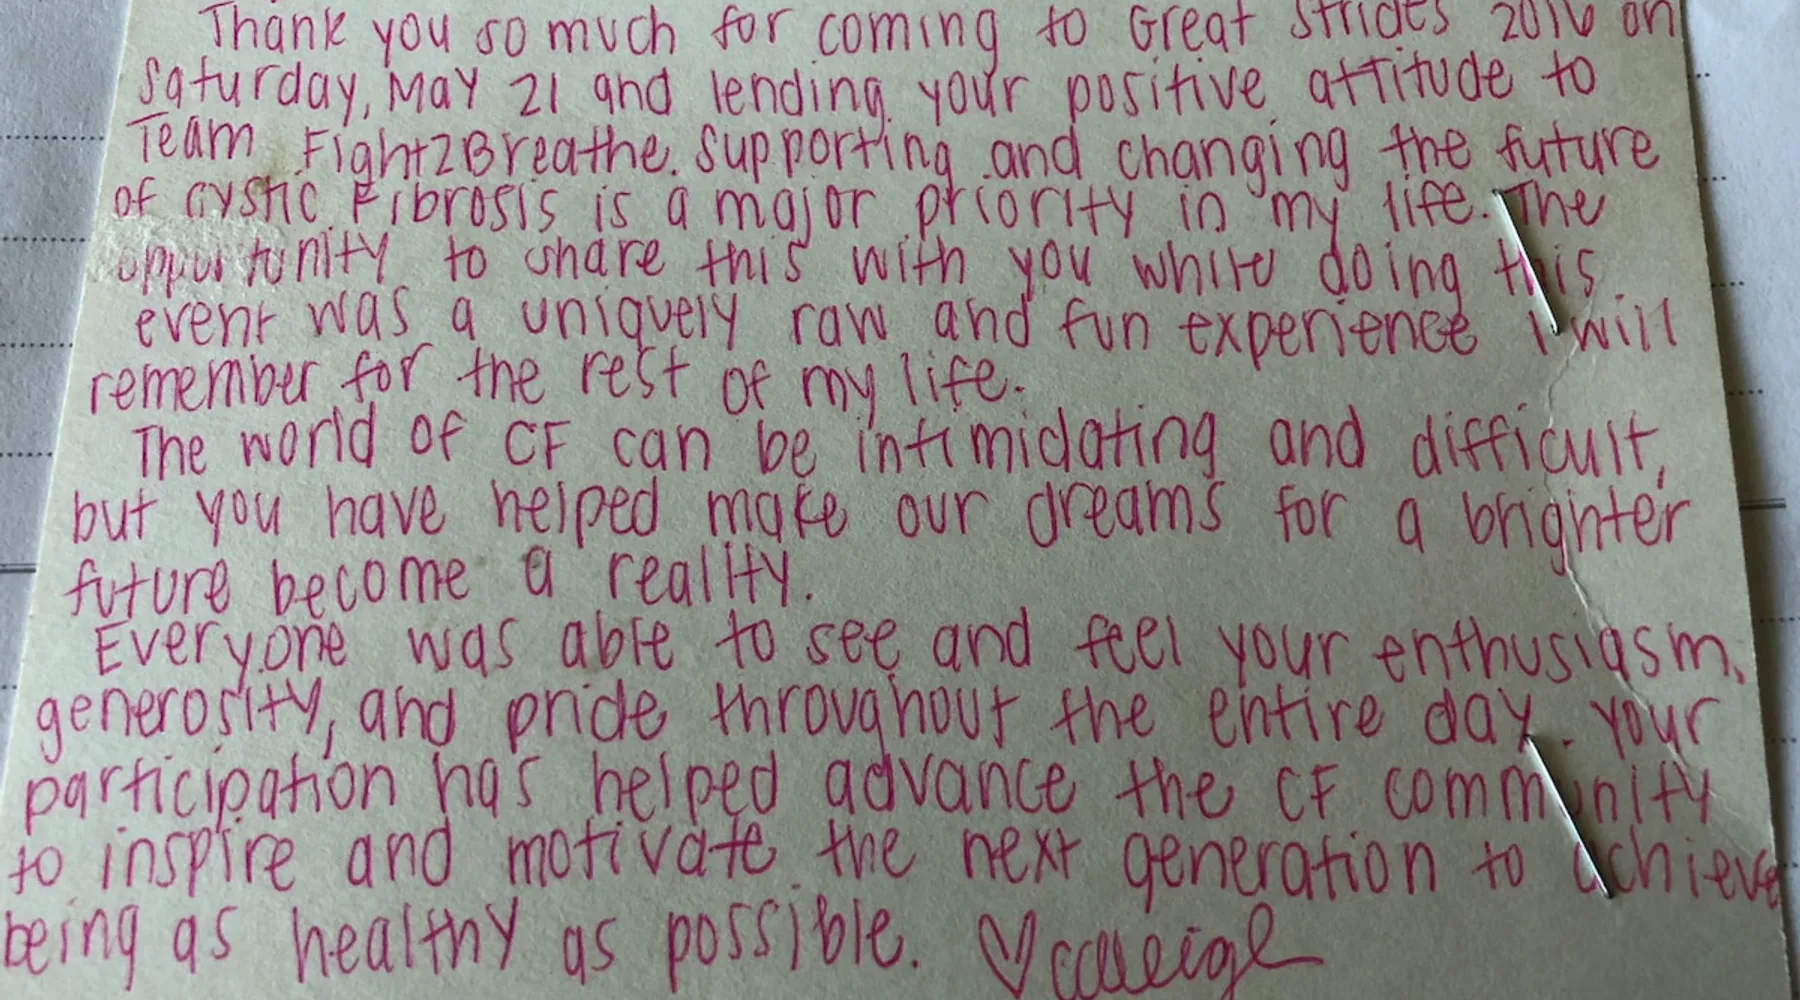 Thank you so much for coming to Great Strides 2016 on
Saturday, May 21 and lending your positive attitude to
Team Fight2Breathe. Supporting and changing the future
of Cystic Fibrosis is a major priority in my life. The
opportunity to share this with you while doing this
event was a uniquely raw and fun experience I will
remember for the rest of my life.
The world of CF can be intimidating and difficult,
but you have helped make our dreams for a brighter
future become a reality.
Everyone was able to see and feel your enthusiasm,
generosity, and pride throughout the entire day. Your
participation has helped advance the CF community
to inspire and motivate the next generation to achieve
being as healthy as possible. ♡ Calleigh